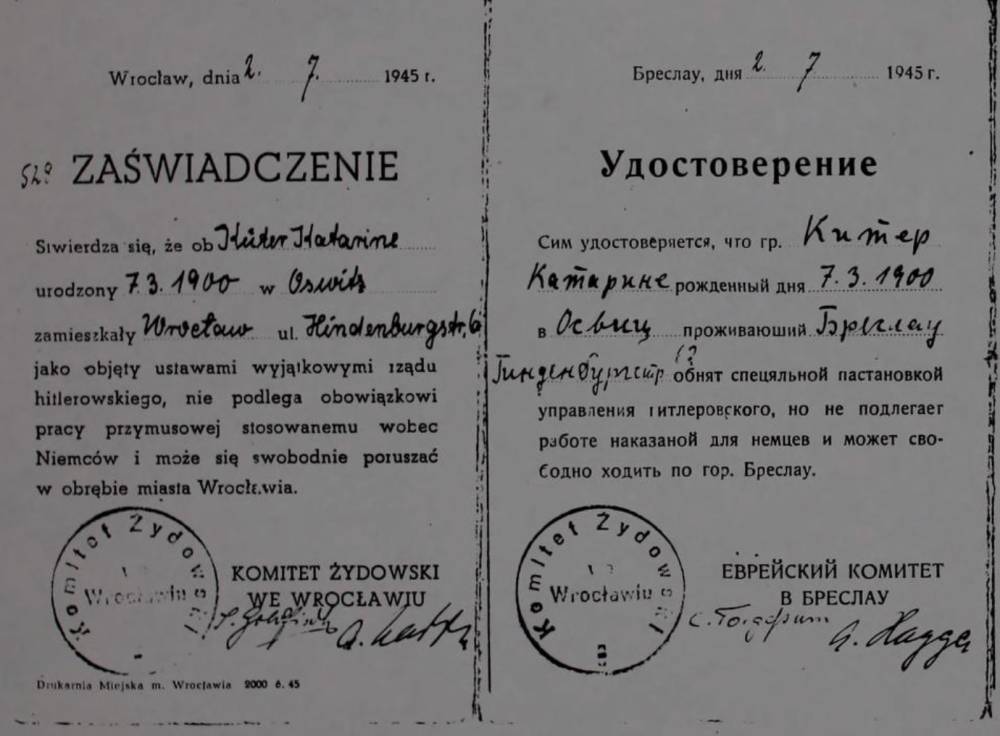 Wrocław, dnia 2. 7. 1945 r.
ZAŚWIADCZENIE
Stwierdza się, że ob Küter Katarine
urodzony 7.3.1900 w Oswitz
zamieszkały Wrocław ul. Hindenburgstr.
jako objęty ustawami wyjątkowymi rządu
hitlerowskiego, nie podlega obowiązkowi
pracy przymusowej stosowanemu wobec
Niemców i może się swobodnie poruszać
w obrębie miasta Wrocławia.
Komitet Żydowski
Wrocławiu
KOMITET ŻYDOWSKI
WE WROCŁAWIU
Drukarnia Miejska m. Wrocławia 2000 6. 45
Бреслау, дня 2. 7 1945 г.
Удостоверение
Сим удостоверяется, что гр. Китер
Катарине рожденный дня 7.3.1900
в Освиц проживаюший Бреслау
Гинденбургстр обнят спецяльной пастановкой
управления гитлеровского, но не подлегает
работе наказаной для немцев и может сво-
бодно ходить по гор. Бреслау.
Komitet Żydowski
Wrocławiu
ЕВРЕЙСКИЙ КОМИТЕТ
В БРЕСЛАУ